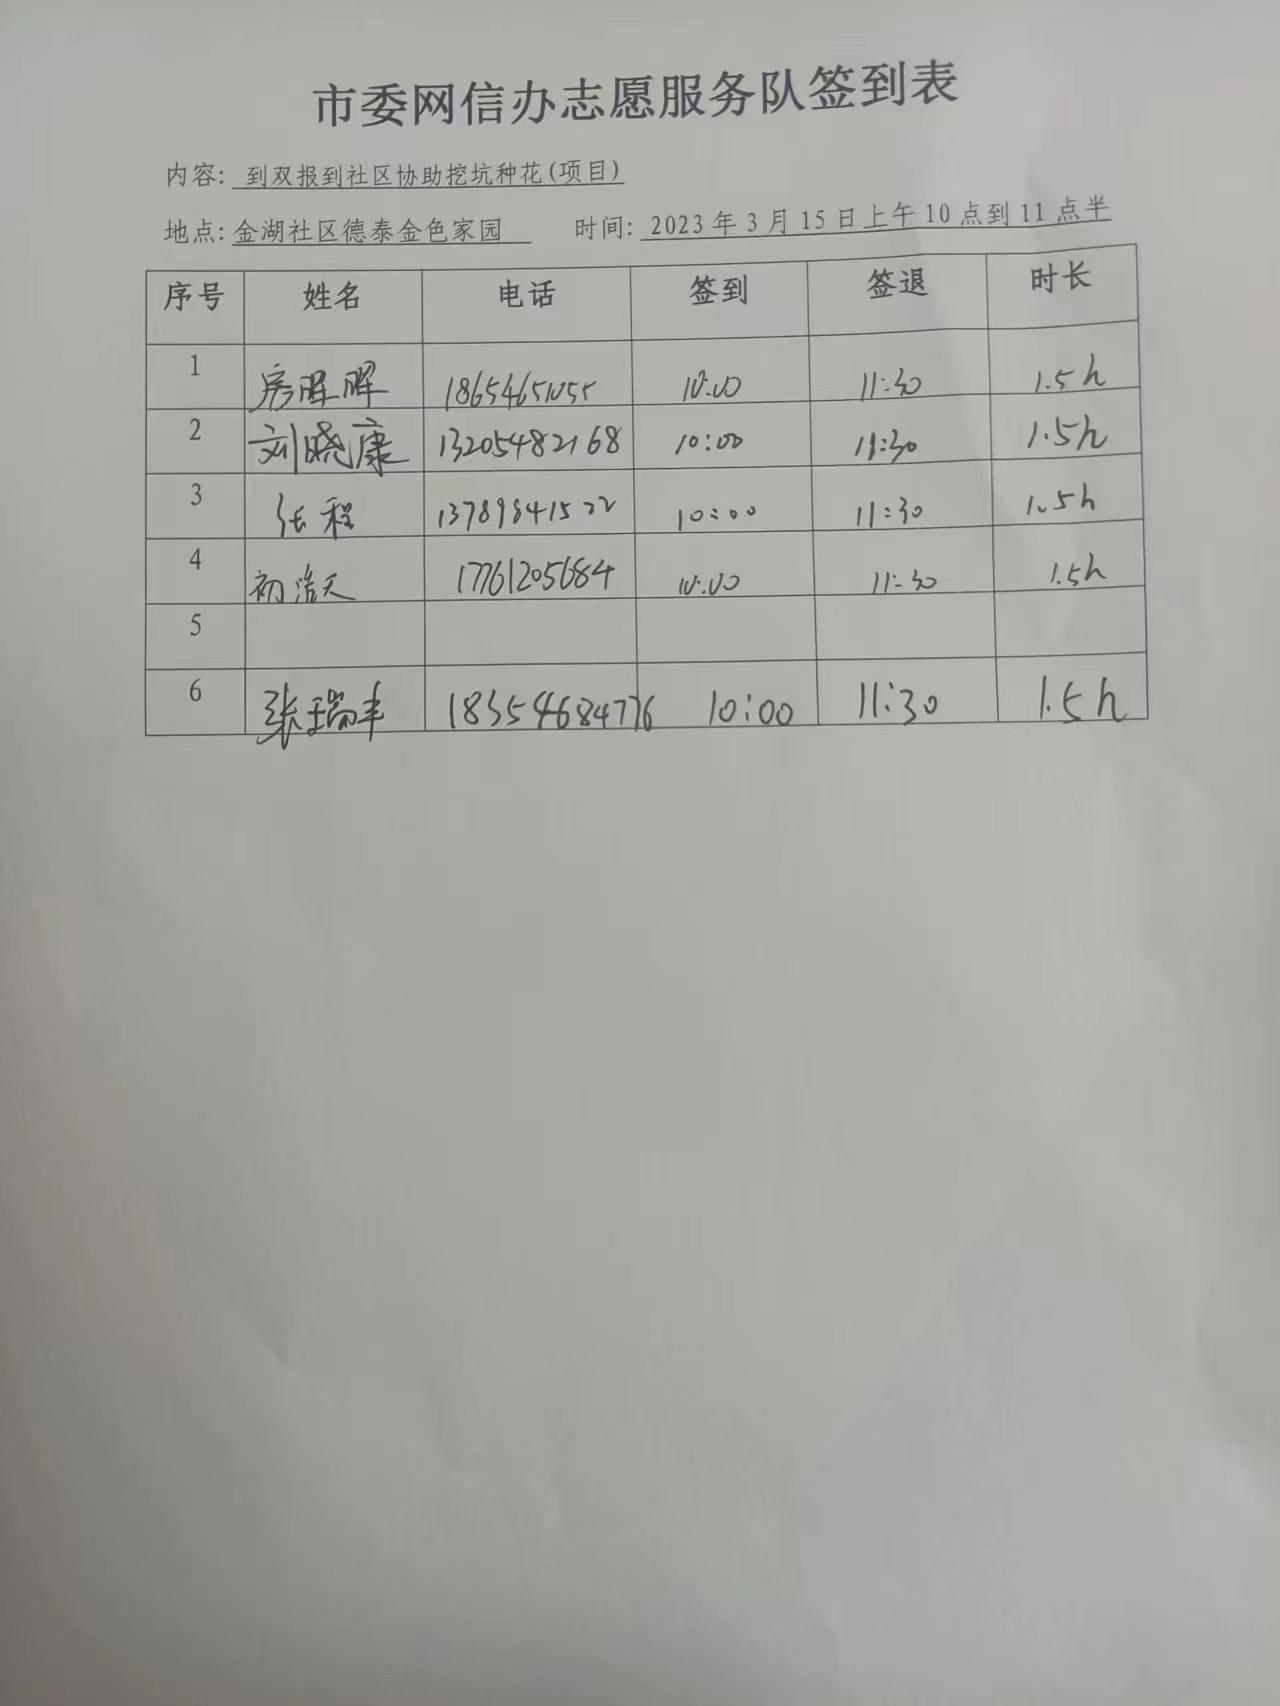 市委网信办志愿服务队签到表
内容: 到双报到社区协助挖坑种花(项目)
地点: 金湖社区德泰金色家园 时间: 2023 年 3 月 15 日上午 10 点到 11 点半
序号 姓名 电话 签到 签退 时长
1 房晖晖 18654651055 10:00 11:30 1.5h
2 刘晓康 13205482168 10:00 11:30 1.5h
3 张程 13789841522 10:00 11:30 1.5h
4 初浩天 17761205684 10:00 11:30 1.5h
5
6 张瑞丰 18354684776 10:00 11:30 1.5h